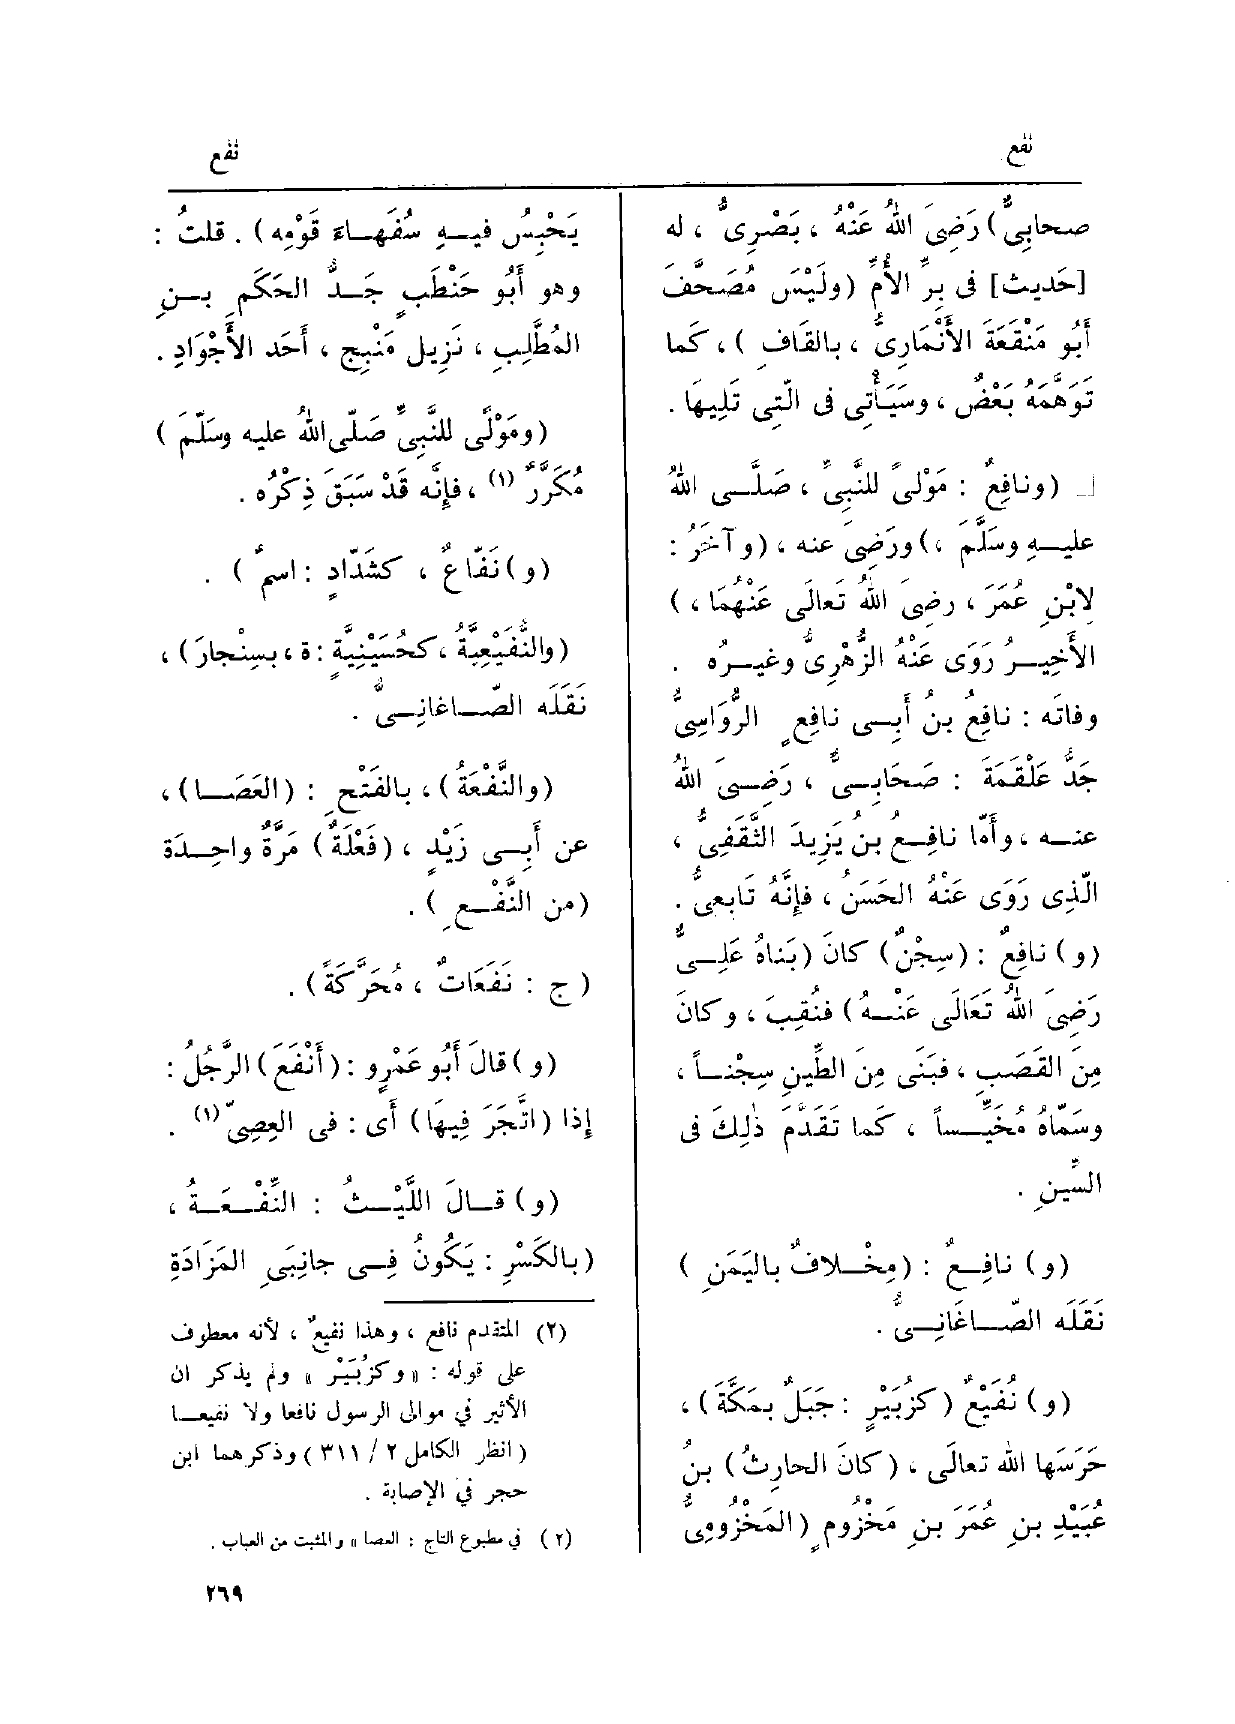 نفع
نفع
صحابِىٌّ) رَضِىَ اللهُ عَنْهُ ، بَصْرِىٌّ ، له
[حَديث] فى بِرِّ الأُمِّ (ولَيْسَ مُصَحَّفَ
أَبُو مَنْقَعَةَ الأَنْمَارِىُّ ، بالقَافِ )، كَما
تَوَهَّمَهُ بَعْضٌ ، وسَيَأْتِى فى الَّتِى تَلِيهَا .
(ونافِعٌ : مَوْلىً للنَّبِىِّ ، صَلَّى اللهُ
عليهِ وسَلَّمَ ،) ورَضِىَ عنه ، (وآخَرُ :
لابْنِ عُمَرَ ، رضِىَ اللهُ تَعالَى عَنْهُمَا ،)
الأَخِيرُ رَوَى عَنْهُ الزُّهْرِىُّ وغيرُه .
وفاتَه : نافِعُ بنُ أَبِى نافِعٍ الرُّوَاسِىُّ
جَدُّ عَلْقَمَةَ : صَحَابِىٌّ ، رَضِىَ اللهُ
عنه ، وأَمّا نافِعُ بن يَزِيدَ الثَّقَفِىُّ ،
الَّذِى رَوَى عَنْهُ الحَسَنُ ، فإِنَّهُ تَابعىٌّ .
(و) نافِعٌ : (سِجْنٌ) كانَ (بَناهُ عَلِىٌّ
رَضِىَ اللهُ تَعَالَى عَنْهُ) فنُقِبَ ، وكانَ
مِنَ القَصَبِ ، فبَنَى مِنَ الطِّينِ سِجْناً ،
وسَمّاهُ مُخَيِّساً ، كَما تَقَدَّمَ ذٰلِكَ فى
السِّينِ .
(و) نافِعٌ : (مِخْلافٌ باليَمَنِ )
نَقَلَه الصّاغَانِىُّ .
(و) نُفَيْعٌ (كزُبَيْرٍ : جَبَلٌ بمَكَّةَ) ،
حَرَسَها الله تعالَى ، (كانَ الحارِثُ) بنُ
عُبَيْدِ بنِ عُمَرَ بنِ مَخْزُومٍ (المَخْزُومِىُّ
يَحْبِسُ فيهِ سُفَهاءَ قَوْمِه) . قلتُ :
وهو أَبُو حَنْطَبٍ جَدُّ الحَكَمِ بنِ
المُطَّلِبِ ، نَزِيل مَنْبِج ، أَحَد الأَجْوَادِ .
(ومَوْلًى للنَّبِىِّ صَلَّى اللهُ عليه وسَلَّمَ )
مُكَرَّرٌ (١) ، فإِنَّه قَدْ سَبَقَ ذِكْرُه .
(و) نَفّاعٌ ، كشَدّادٍ : اسمٌ ) .
(والنُّفَيْعِيَّةُ ، كحُسَيْنِيَّةٍ : ة ، بسِنْجارَ) ،
نَقَلَه الصّاغانِىُّ .
(والنَّفْعَةُ) ، بالفَتْحِ : (العَصَا) ،
عن أَبِى زَيْدٍ ، (فَعْلَةٌ) مَرَّةٌ واحِدَة
(من النَّفْعِ ) .
( ج : نَفَعَاتٌ ، مُحَرَّكَةً) .
(و) قالَ أَبُو عَمْرٍو : (أَنْفَعَ) الرَّجُلُ :
إذا (اتَّجَرَ فِيهَا) أَى : فى العِصِىّ (١) .
(و) قالَ اللَّيْثُ : النِّفْعَةُ ،
(بالكَسْرِ : يَكُونُ فِى جانِبَىِ المَزَادَةِ
(٢) المتقدم نافع ، وهذا نفيعٌ ، لأنه معطوف
على قوله : « وكزُبَيْر » ولم يذكر ان
الأثير في موالى الرسول نافعا ولا نفيعا
(انظر الكامل ٢ / ٣١١) وذكرهما ابن
حجر في الإصابة .
(٢) في مطبوع التاج : العصا » والمثبت من العباب .
٢٦٩